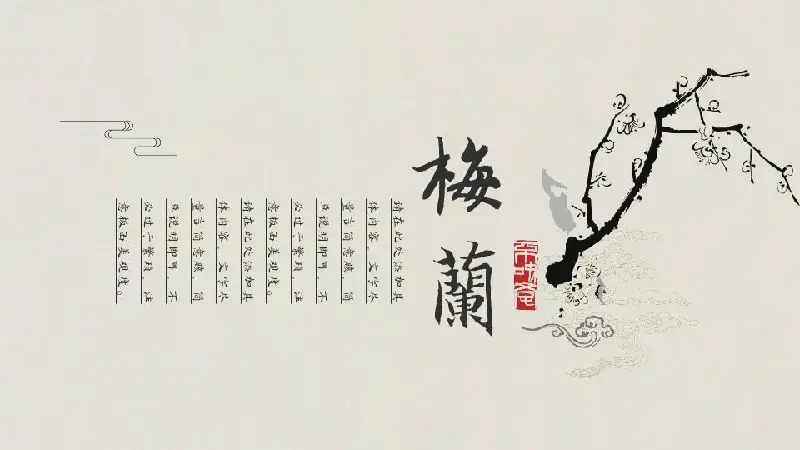 梅蘭
请在此处添加具
体内容，文字尽
量言简意赅，简
单说明即可，不
必过于繁琐，注
意板面美观度。
请在此处添加具
体内容，文字尽
量言简意赅，简
单说明即可，不
必过于繁琐，注
意板面美观度。